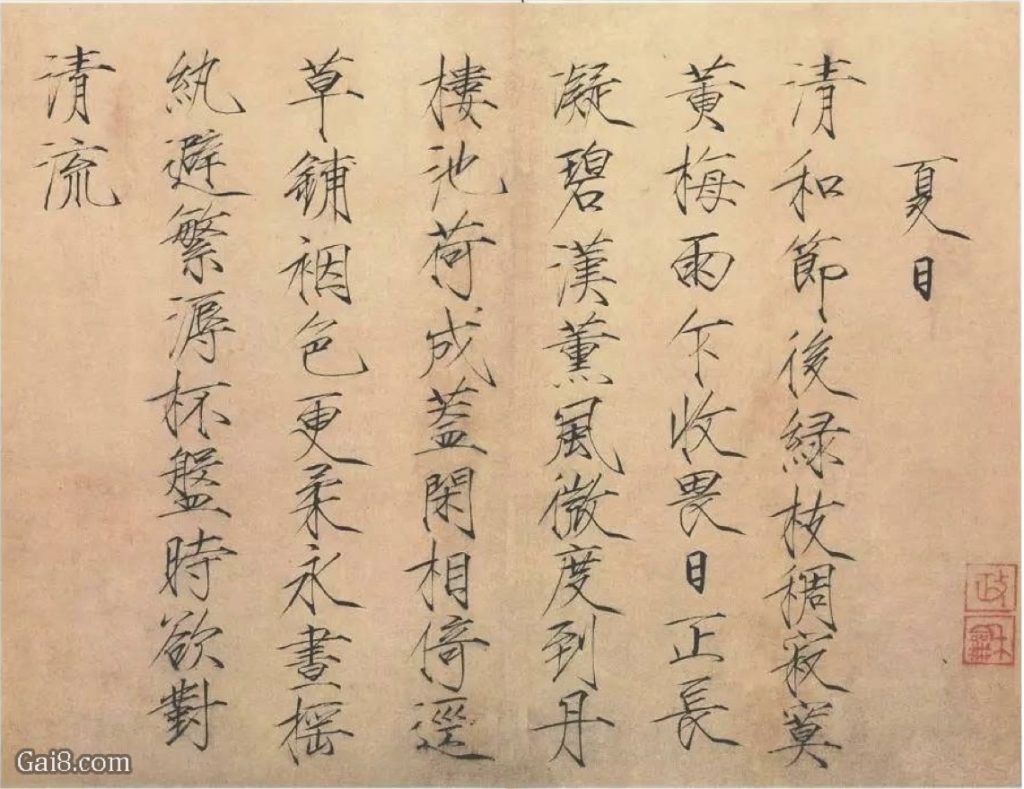 夏日
清和節後緑枝稠寂寞
黄梅雨乍收畏日正長
凝碧漢薰風微度到丹
樓池荷成蓋閑相倚逕
草鋪裀色更柔永晝揺
紈避繁溽杯盤時欲對
清流
政和
Gai8.com